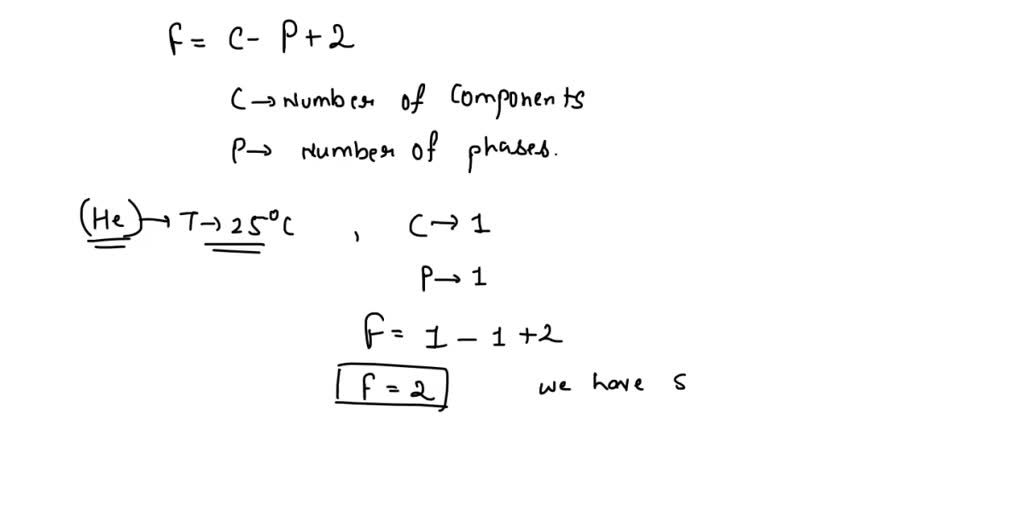 F = C - P + 2
C → Number of Components
P → Number of phases.
(He) → T → 25°C , C → 1
P → 1
F = 1 - 1 + 2
F = 2 we have s